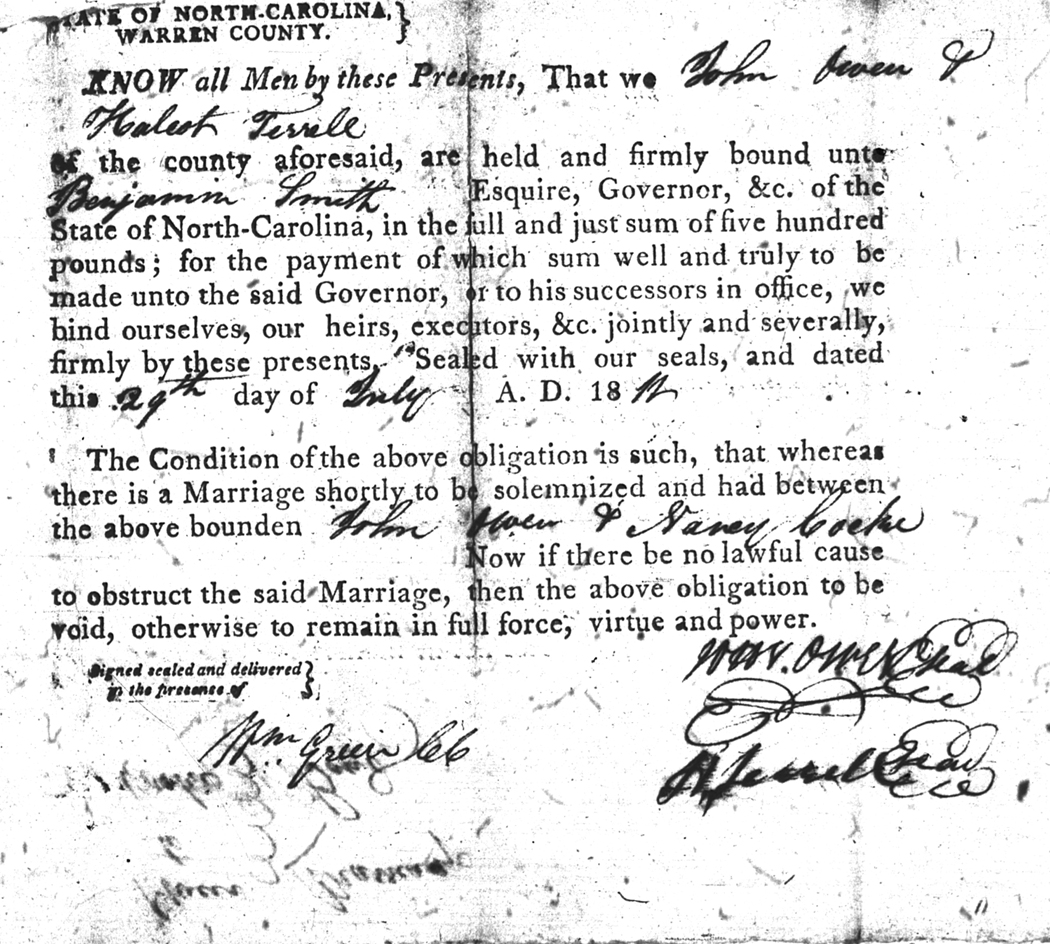 STATE OF NORTH-CAROLINA,
WARREN COUNTY.
KNOW all Men by these Presents, That we John Owen &
Halest Terrell
of the county aforesaid, are held and firmly bound unto
Benjamin Smith Esquire, Governor, &c. of the
State of North-Carolina, in the full and just sum of five hundred
pounds; for the payment of which sum well and truly to be
made unto the said Governor, or to his successors in office, we
bind ourselves, our heirs, executors, &c. jointly and severally,
firmly by these presents, Sealed with our seals, and dated
this 29th day of July A. D. 18 11
The Condition of the above obligation is such, that whereas
there is a Marriage shortly to be solemnized and had between
the above bounden John Owen & Nancy Cocke
Now if there be no lawful cause
to obstruct the said Marriage, then the above obligation to be
void, otherwise to remain in full force, virtue and power.
Owen Seal
Signed sealed and delivered
in the presence of
Wm Green
H Terrell Seal
11